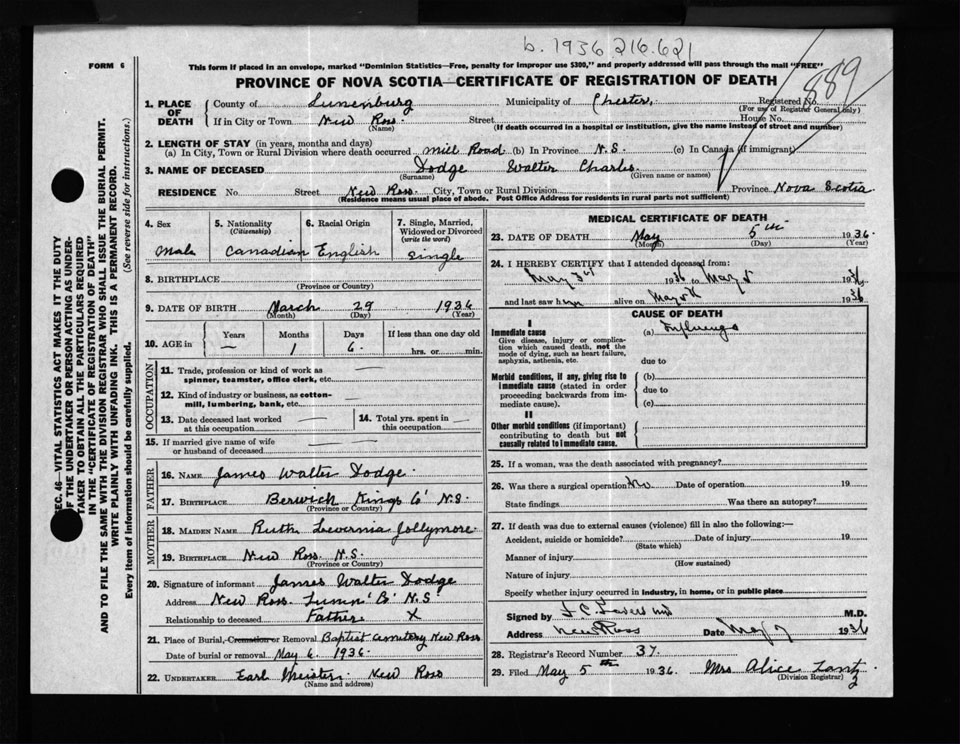 b. 1936 216.621
FORM 6
This form if placed in an envelope, marked "Dominion Statistics—Free, penalty for improper use $300," and properly addressed will pass through the mail "FREE"
PROVINCE OF NOVA SCOTIA—CERTIFICATE OF REGISTRATION OF DEATH
889
1. PLACE OF DEATH County of Lunenburg Municipality of Chester, Registered No.
(For use of Registrar General only)
If in City or Town New Ross. Street House No.
(Name) (If death occurred in a hospital or institution, give the name instead of street and number)
2. LENGTH OF STAY (in years, months and days)
(a) In City, Town or Rural Division where death occurred Mill Road (b) In Province N.S. (c) In Canada (if immigrant)
3. NAME OF DECEASED Dodge Walter Charles
(Surname) (Given name or names)
RESIDENCE No. Street New Ross. City, Town or Rural Division Province Nova Scotia
(Residence means usual place of abode. Post Office Address for residents in rural parts not sufficient)
SEC. 46—VITAL STATISTICS ACT MAKES IT THE DUTY
OF THE UNDERTAKER OR PERSON ACTING AS UNDER-
TAKER TO OBTAIN ALL THE PARTICULARS REQUIRED
IN THE "CERTIFICATE OF REGISTRATION OF DEATH"
AND TO FILE THE SAME WITH THE DIVISION REGISTRAR WHO SHALL ISSUE THE BURIAL PERMIT.
WRITE PLAINLY WITH UNFADING INK. THIS IS A PERMANENT RECORD.
Every item of Information should be carefully supplied. (See reverse side for Instructions.)
4. Sex
Male
5. Nationality
(Citizenship)
Canadian
6. Racial Origin
English
7. Single, Married,
Widowed or Divorced
(write the word)
single
8. BIRTHPLACE
(Province or Country)
9. DATE OF BIRTH March 29 1936
(Month) (Day) (Year)
10. AGE in Years Months Days If less than one day old
— 1 6. hrs. or min.
OCCUPATION
11. Trade, profession or kind of work as
spinner, teamster, office clerk, etc. —
12. Kind of industry or business, as cotton-
mill, lumbering, bank, etc. —
13. Date deceased last worked
at this occupation —
14. Total yrs. spent in
this occupation —
15. If married give name of wife
or husband of deceased —
FATHER
16. NAME James Walter Dodge.
17. BIRTHPLACE Berwick Kings Co' N.S.
(Province or Country)
MOTHER
18. MAIDEN NAME Ruth Jollymore
19. BIRTHPLACE New Ross N.S.
(Province or Country)
20. Signature of informant James Walter Dodge
Address New Ross. Co' N.S
Relationship to deceased Father X
21. Place of Burial, Cremation or Removal Baptist Cemetery New Ross
Date of burial or removal May 6. 1936.
22. UNDERTAKER Earl New Ross
(Name and address)
MEDICAL CERTIFICATE OF DEATH
23. DATE OF DEATH May 5th 1936.
(Month) (Day) (Year)
24. I HEREBY CERTIFY that I attended deceased from:
May 3rd 1936 to May 5 1936
and last saw him alive on May 1936
CAUSE OF DEATH
I
Immediate cause (a) Influenza
Give disease, injury or complica-
tion which caused death, not the
mode of dying, such as heart failure,
asphyxia, asthenia, etc.
due to
Morbid conditions, if any, giving rise to
immediate cause (stated in order
proceeding backwards from im-
mediate cause).
(b)
due to
(c)
II
Other morbid conditions (if important)
contributing to death but not
causally related to immediate cause.
25. If a woman, was the death associated with pregnancy?
26. Was there a surgical operation? No Date of operation 19
State findings Was there an autopsy?
27. If death was due to external causes (violence) fill in also the following:—
Accident, suicide or homicide? Date of injury 19
(State which)
Manner of injury
(How sustained)
Nature of injury
Specify whether injury occurred in industry, in home, or in public place
Signed by M.D.
Address New Ross Date May 7 1936
28. Registrar's Record Number 37.
29. Filed May 5th 1936. Mrs Alice Lantz
(Division Registrar)